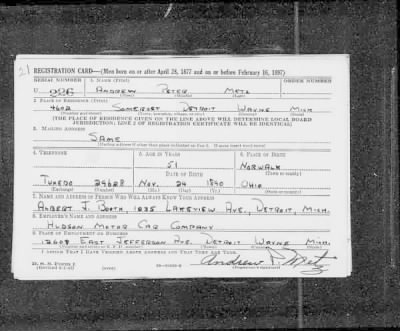 21
REGISTRATION CARD—(Men born on or after April 28, 1877 and on or before February 16, 1897)
SERIAL NUMBER 1. NAME (Print) ORDER NUMBER
U 226 ANDREW PETER METZ
(First) (Middle) (Last)
2. PLACE OF RESIDENCE (Print)
4602 SOMERSET DETROIT WAYNE MICH
(Number and street) (Town, township, village, or city) (County) (State)
[THE PLACE OF RESIDENCE GIVEN ON THE LINE ABOVE WILL DETERMINE LOCAL BOARD
JURISDICTION; LINE 2 OF REGISTRATION CERTIFICATE WILL BE IDENTICAL]
3. MAILING ADDRESS
SAME
4. TELEPHONE 5. AGE IN YEARS 6. PLACE OF BIRTH
51 NORWALK
DATE OF BIRTH (Town or county)
TUXEDO 29628 NOV. 24 1890 OHIO
(Exchange) (Number) (Mo.) (Day) (Yr.) (State or country)
7. NAME AND ADDRESS OF PERSON WHO WILL ALWAYS KNOW YOUR ADDRESS
ALBERT J. BOOTH, 1235 LAKEVIEW AVE., DETROIT, MICH.
8. EMPLOYER'S NAME AND ADDRESS
HUDSON MOTOR CAR COMPANY
9. PLACE OF EMPLOYMENT OR BUSINESS
12608 EAST JEFFERSON AVE. DETROIT WAYNE MICH.
(Number and street or R. F. D. number) (Town) (County) (State)
I AFFIRM THAT I HAVE VERIFIED ABOVE ANSWERS AND THAT THEY ARE TRUE.
D. S. S. Form 1
Andrew P. Metz